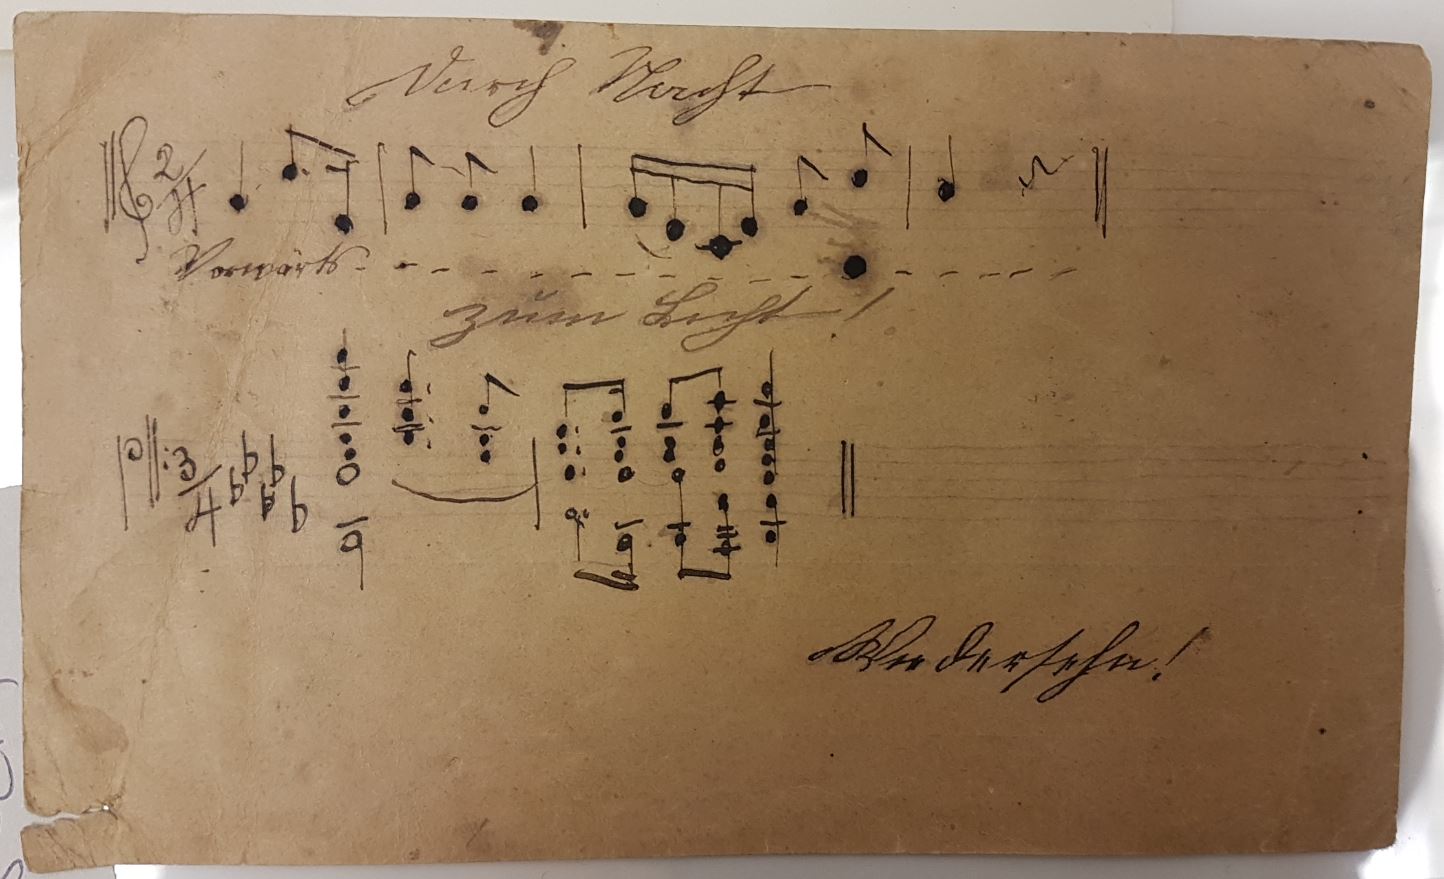 Durch Nacht
2/4
Vorwärts - - - - - - - - - - - - - -
zum Licht!
3/4
Wiedersehn!